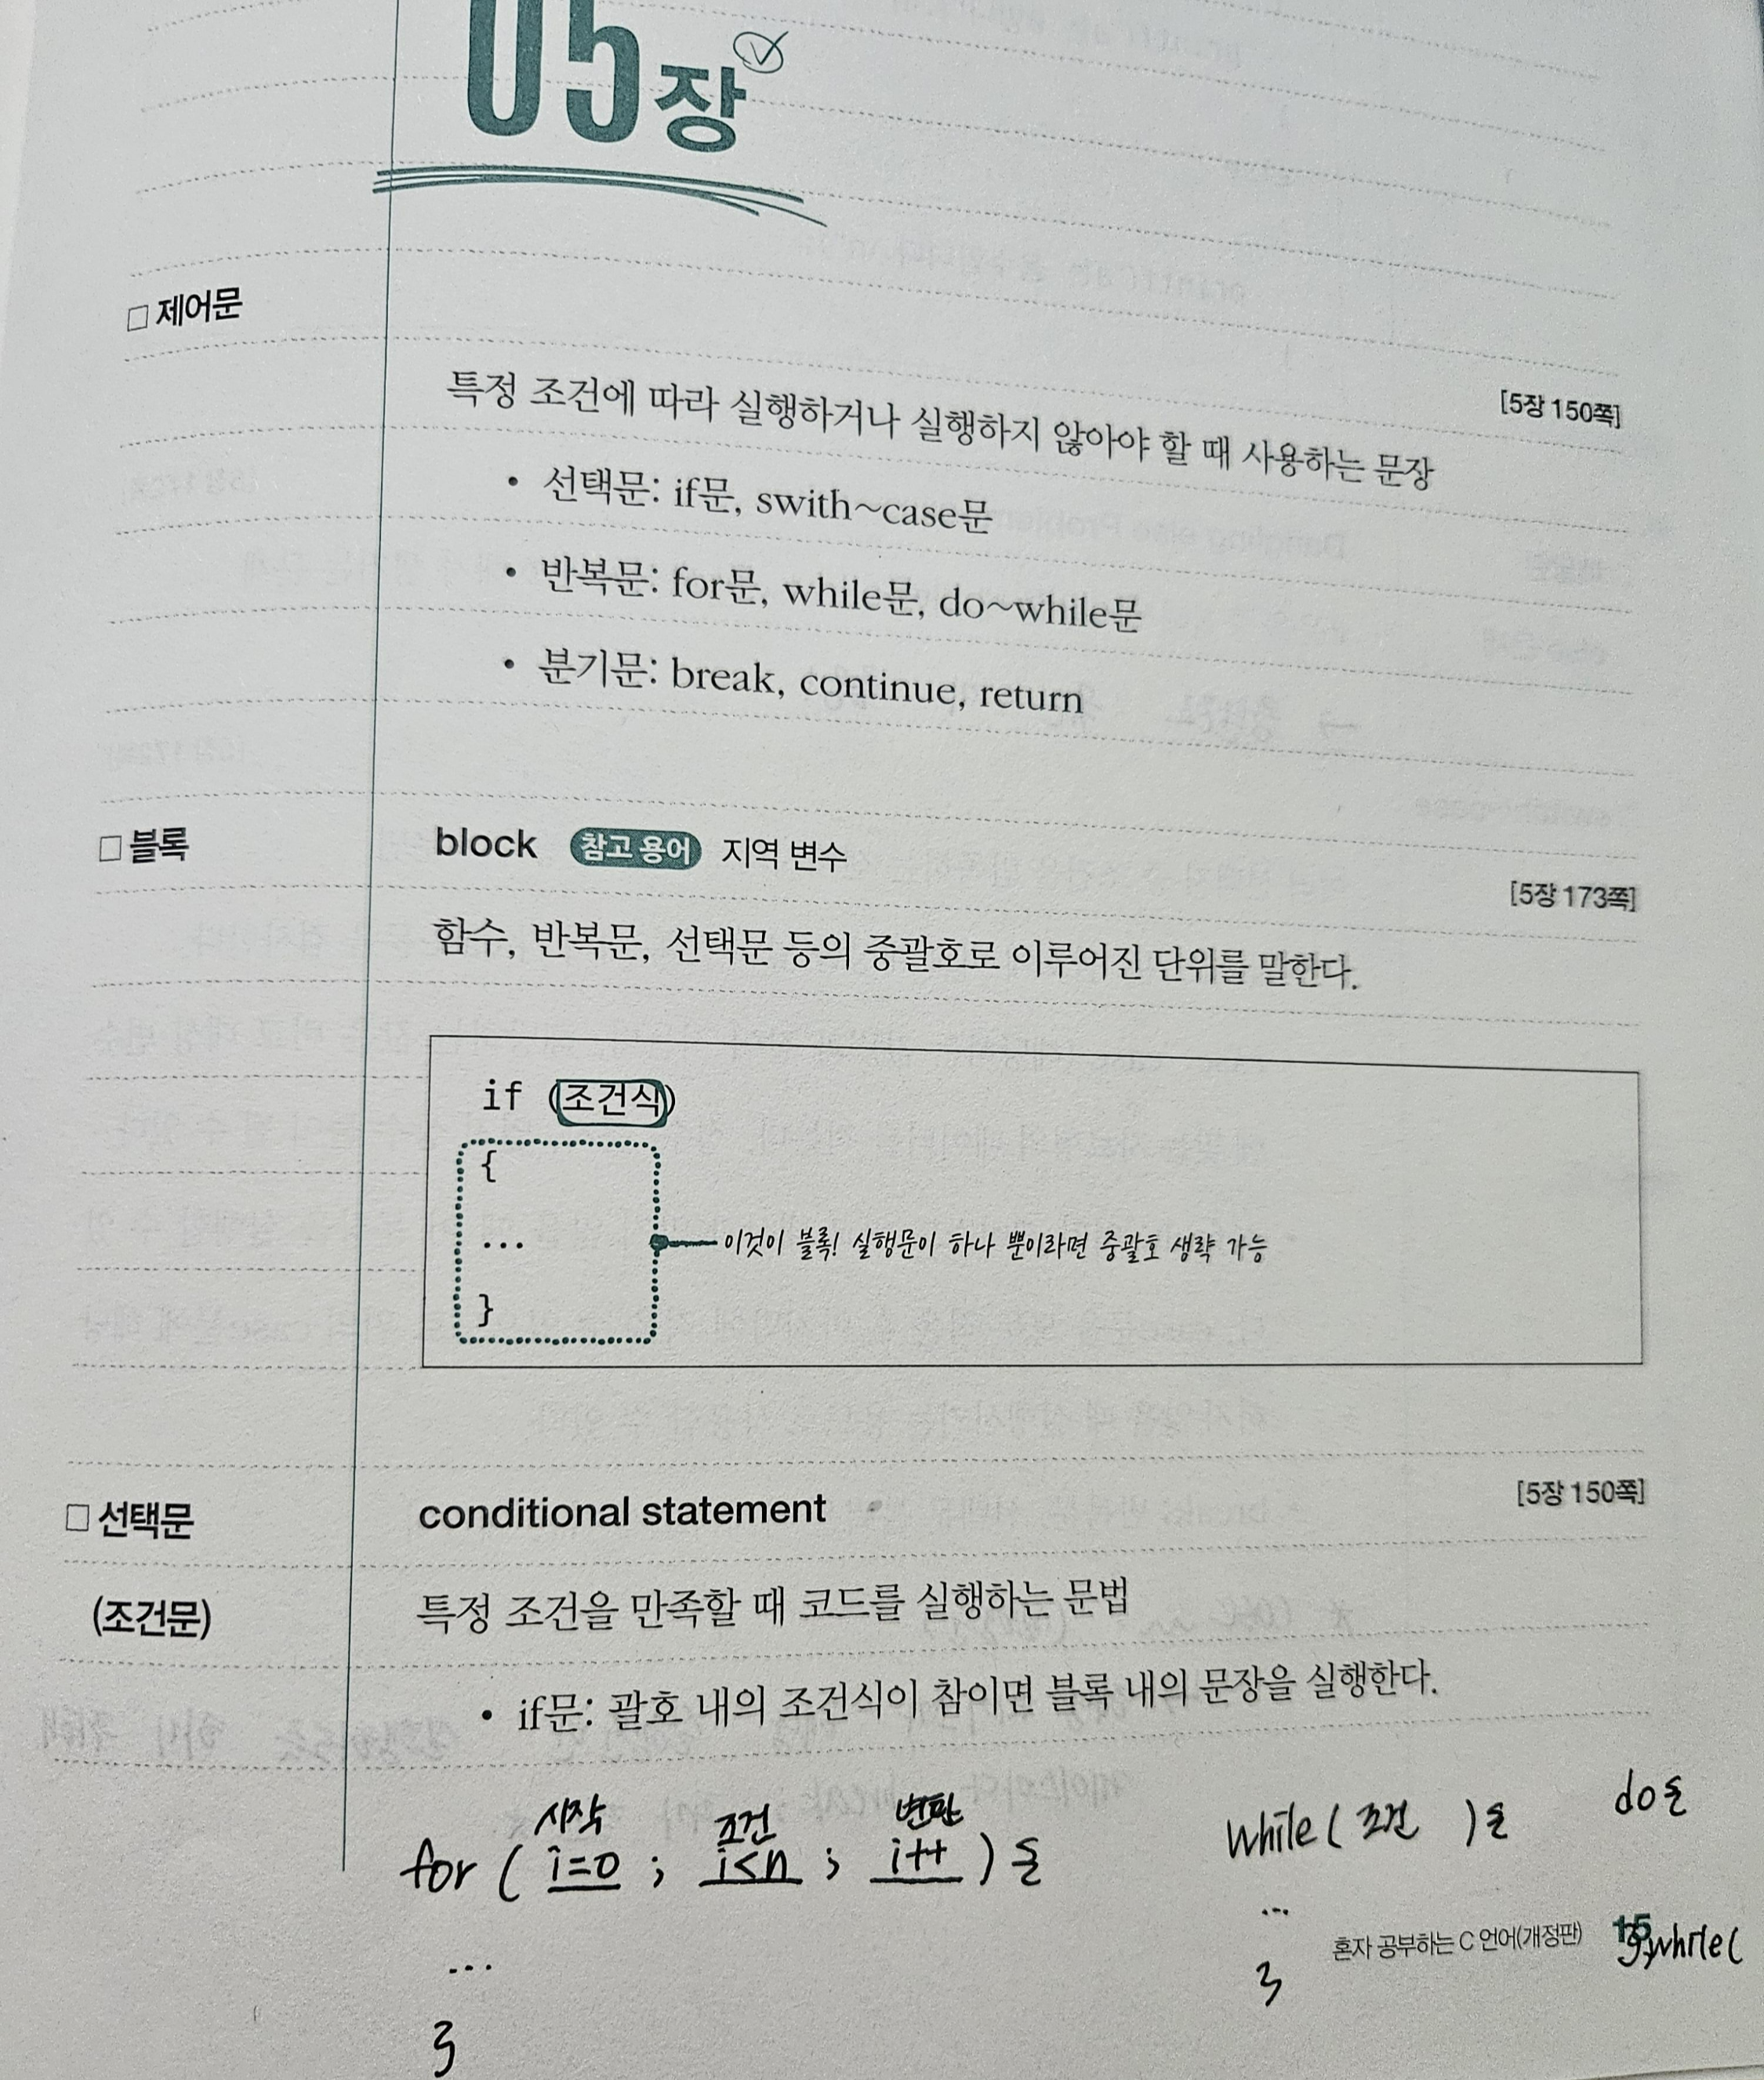 05장
□ 제어문
[5장 150쪽]
특정 조건에 따라 실행하거나 실행하지 않아야 할 때 사용하는 문장
• 선택문: if문, swith~case문
• 반복문: for문, while문, do~while문
• 분기문: break, continue, return
□ 블록 block 참고 용어 지역 변수
[5장 173쪽]
함수, 반복문, 선택문 등의 중괄호로 이루어진 단위를 말한다.
if (조건식)
{
... 이것이 블록! 실행문이 하나 뿐이라면 중괄호 생략 가능
}
□ 선택문 conditional statement [5장 150쪽]
(조건문) 특정 조건을 만족할 때 코드를 실행하는 문법
• if문: 괄호 내의 조건식이 참이면 블록 내의 문장을 실행한다.
시작 조건
for ( i=0 ; i<n ; i++ ) {
...
}
while ( 조건 ) {
...
}
do {
} while (
혼자 공부하는 C 언어(개정판) 15